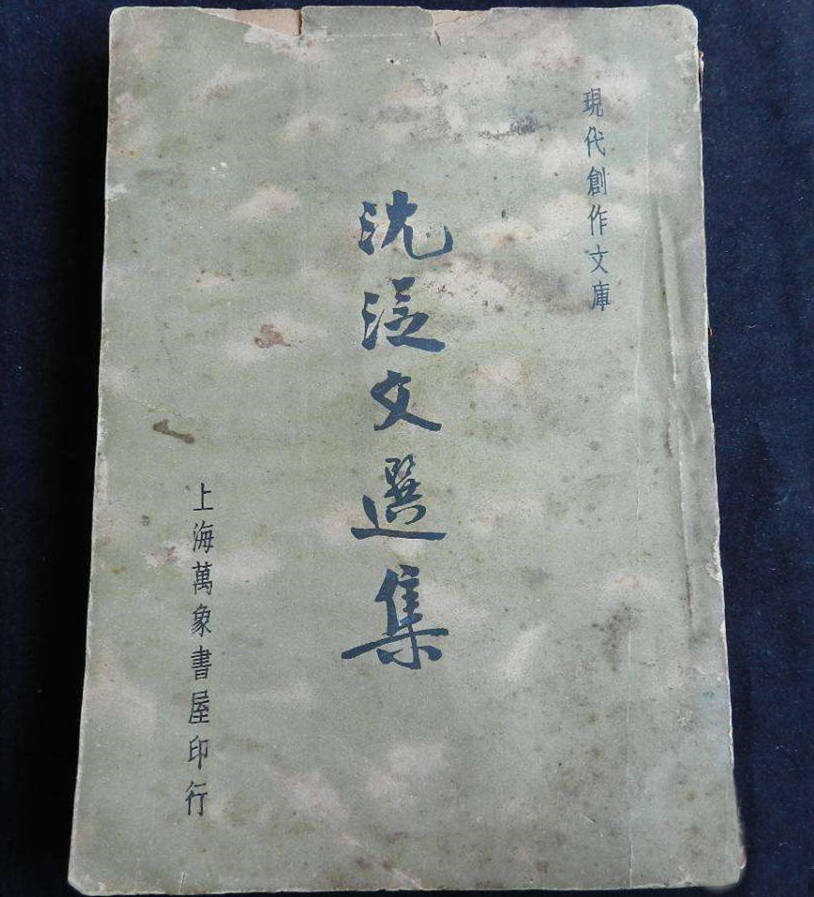 現代創作文庫
沈從文選集
上海萬象書屋印行